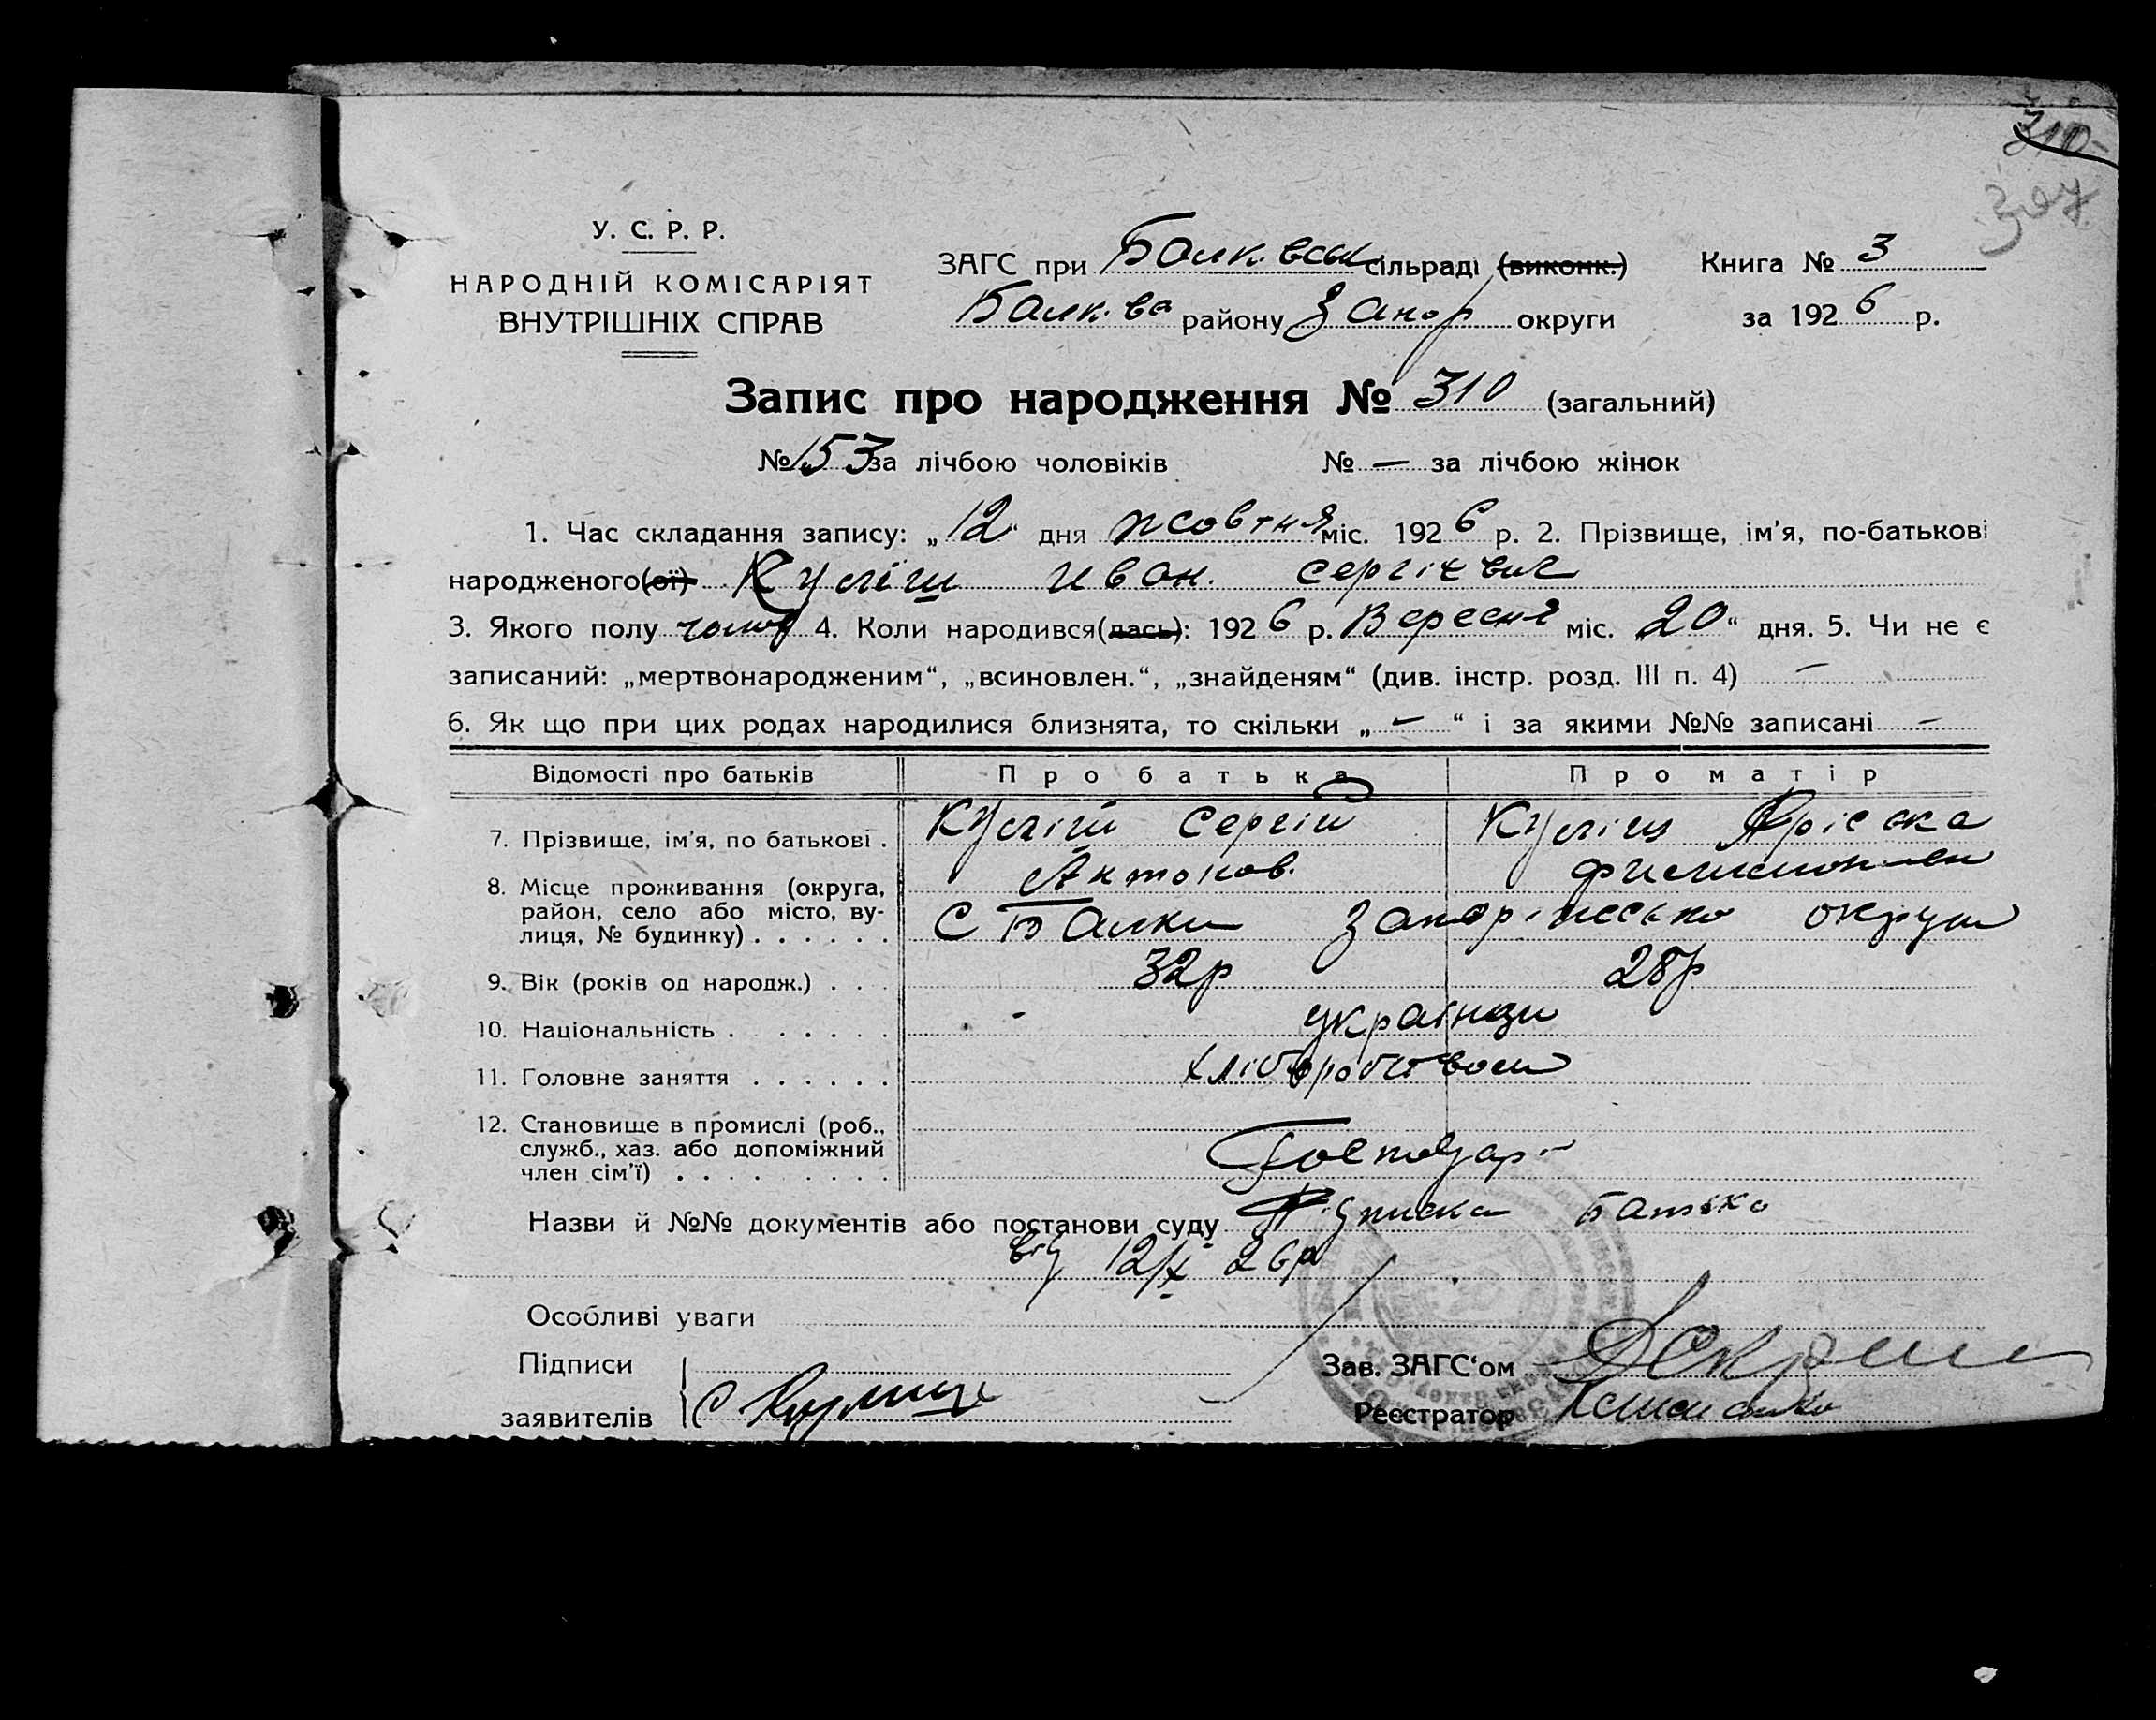 310
307
У. С. Р. Р.
НАРОДНІЙ КОМІСАРІЯТ
ВНУТРІШНІХ СПРАВ
ЗАГС при Балківськ сільраді (виконк.)
Балків. району Запор округи
Книга № 3
за 1926 р.
Запис про народження № 310 (загальний)
№ 153 за лічбою чоловіків № — за лічбою жінок
1. Час складання запису: „12“ дня жовтня міс. 1926 р. 2. Прізвище, ім'я, по-батькові
народженого(ої) Куліш Иван. Сергієвич
3. Якого полу чолов 4. Коли народився(лась): 1926 р. Вересня міс. „20“ дня. 5. Чи не є
записаний: „мертвонародженим“, „всиновлен.“, „знайденям“ (див. інстр. розд. III п. 4) —
6. Як що при цих родах народилися близнята, то скільки „—“ і за якими №№ записані —
Відомості про батьків Про батька Про матір
7. Прізвище, ім'я, по батькові . Куліш Сергій Антонов. Куліш
8. Місце проживання (округа, район, село або місто, вулиця, № будинку) . . . . . . С Балки Запоріжсько округи
9. Вік (років од народж.) . . . 32р 28р
10. Національність . . . . . . українци
11. Головне заняття . . . . . . хліборобством
12. Становище в промислі (роб., служб., хаз. або допоміжний член сім'ї) . . . . . . . . . Господар
Назви й №№ документів або постанови суду Підписка батька
від 12/X 26р
Особливі уваги
Підписи
заявителів С Кулиш
Зав. ЗАГС'ом
Реєстратор